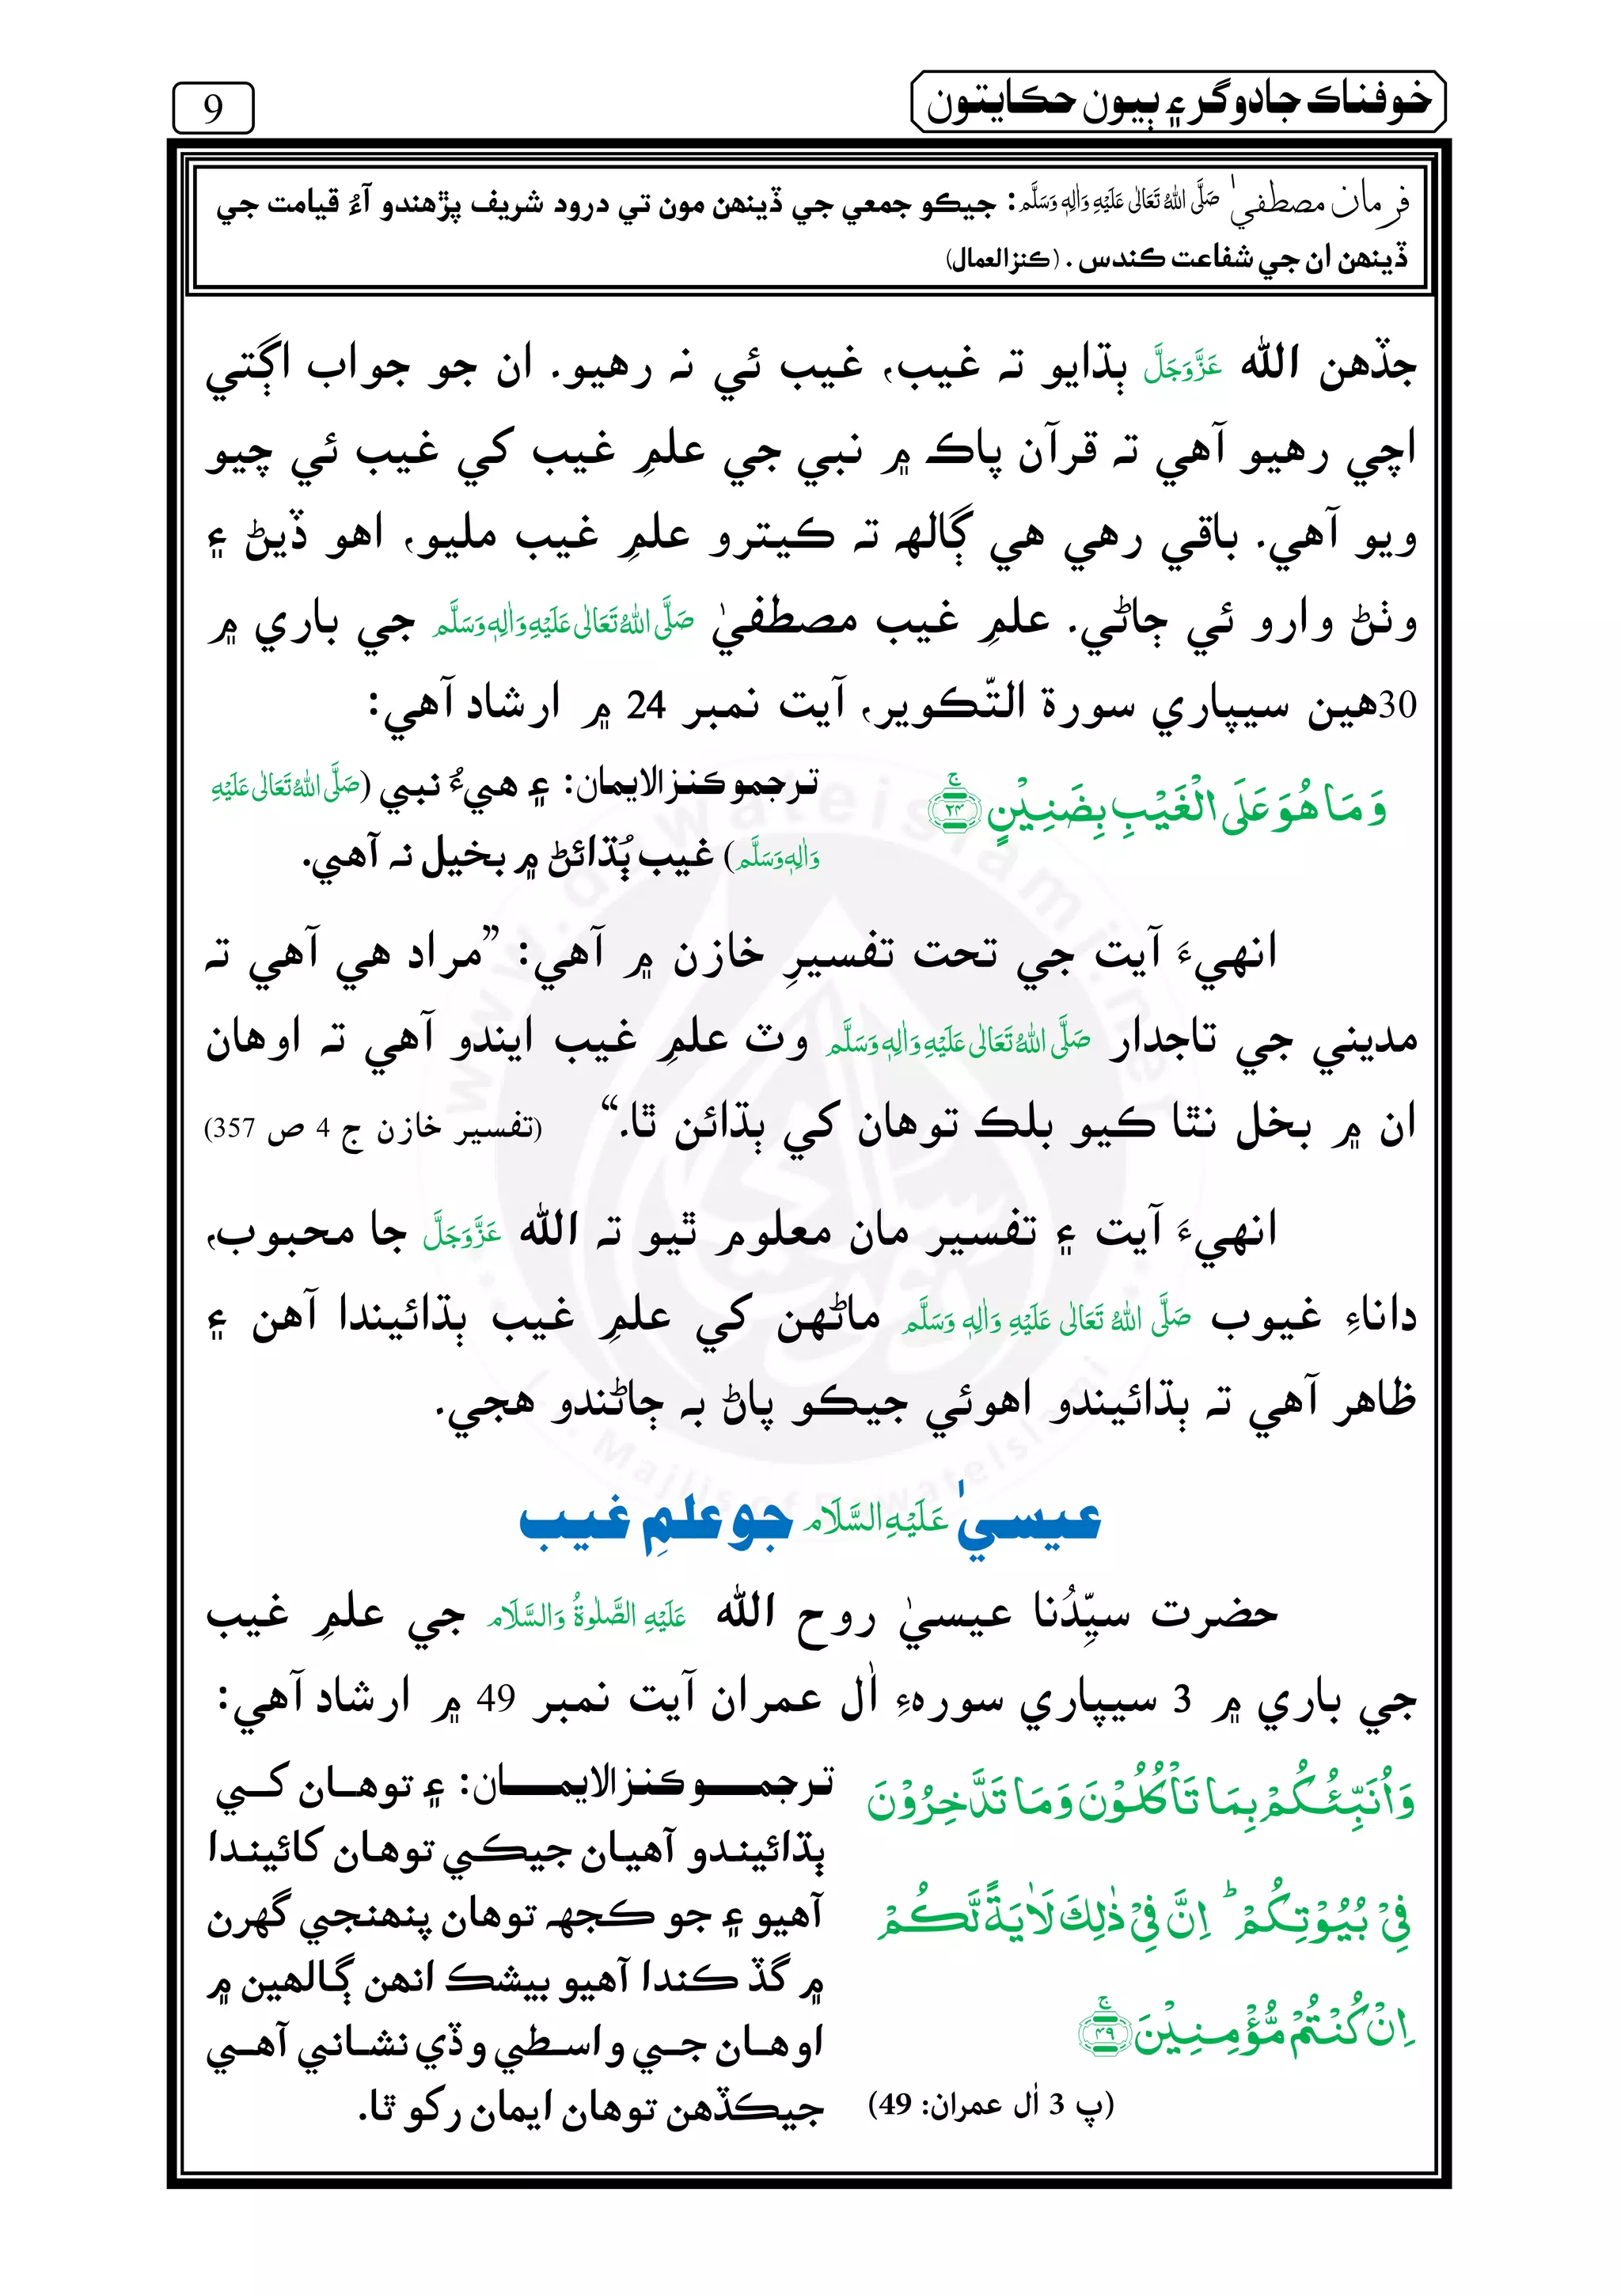 خوفناڪ جادوگر ۽ ٻيون حڪايتون
9
فرمان مصطفيٰ صَلَّى اللهُ تَعَالٰى عَلَيْهِ وَاٰلِهٖ وَسَلَّم: جيڪو جمعي جي ڏينهن مون تي درود شريف پڙهندو آءُ قيامت جي
ڏينهن ان جي شفاعت ڪندس. (ڪنزالعمال)
جڏهن الله عَزَّوَجَلَّ ٻڌايو ته غيب، غيب ئي نہ رهيو. ان جو جواب اڳتي
اچي رهيو آهي تہ قرآن پاڪ ۾ نبي جي علمِ غيب کي غيب ئي چيو
ويو آهي. باقي رهي هي ڳالهہ تہ ڪيترو علمِ غيب مليو، اهو ڏيڻ ۽
وٺڻ وارو ئي ڄاڻي. علمِ غيب مصطفيٰ صَلَّى اللهُ تَعَالٰى عَلَيْهِ وَاٰلِهٖ وَسَلَّم جي باري ۾
30هين سيپاري سورة التّڪوير، آيت نمبر 24 ۾ ارشاد آهي:
وَمَا هُوَ عَلَى الْغَيْبِ بِضَنِيْنٍ ﴿۲۴﴾
ترجمو ڪنزالايمان: ۽ هيءُ نبي (صَلَّى اللهُ تَعَالٰى عَلَيْهِ
وَاٰلِهٖ وَسَلَّم) غيب ٻُڌائڻ ۾ بخيل نہ آهي.
انهيءَ آيت جي تحت تفسيرِ خازن ۾ آهي: ”مراد هي آهي تہ
مديني جي تاجدار صَلَّى اللهُ تَعَالٰى عَلَيْهِ وَاٰلِهٖ وَسَلَّم وٽ علمِ غيب ايندو آهي تہ اوهان
ان ۾ بخل نٿا ڪيو بلڪ توهان کي ٻڌائن ٿا.“ (تفسير خازن ج 4 ص 357)
انهيءَ آيت ۽ تفسير مان معلوم ٿيو تہ الله عَزَّوَجَلَّ جا محبوب،
داناءِ غيوب صَلَّى اللهُ تَعَالٰى عَلَيْهِ وَاٰلِهٖ وَسَلَّم ماڻهن کي علمِ غيب ٻڌائيندا آهن ۽
ظاهر آهي تہ ٻڌائيندو اهوئي جيڪو پاڻ بہ ڄاڻندو هجي.
عيسيٰ عَلَيْهِ السَّلَام جو علمِ غيب
حضرت سيّدُنا عيسيٰ روح الله عَلَيْهِ الصَّلٰوةُ وَالسَّلَام جي علمِ غيب
جي باري ۾ 3 سيپاري سورهءِ اٰل عمران آيت نمبر 49 ۾ ارشاد آهي:
وَاُنَبِّئُكُمْ بِمَا تَاْكُلُوْنَ وَمَا تَدَّخِرُوْنَ
فِيْ بُيُوْتِكُمْ ؕ اِنَّ فِيْ ذٰلِكَ لَاٰيَةً لَّكُمْ
اِنْ كُنْتُمْ مُّؤْمِنِيْنَ ﴿۴۹﴾
(پ 3 اٰل عمران: 49)
ترجمو ڪنزالايمان: ۽ توهان کي
ٻڌائيندو آهيان جيڪي توهان کائيندا
آهيو ۽ جو ڪجهہ توهان پنهنجي گهرن
۾ گڏ ڪندا آهيو بيشڪ انهن ڳالهين ۾
اوهان جي واسطي وڏي نشاني آهي
جيڪڏهن توهان ايمان رکو ٿا.